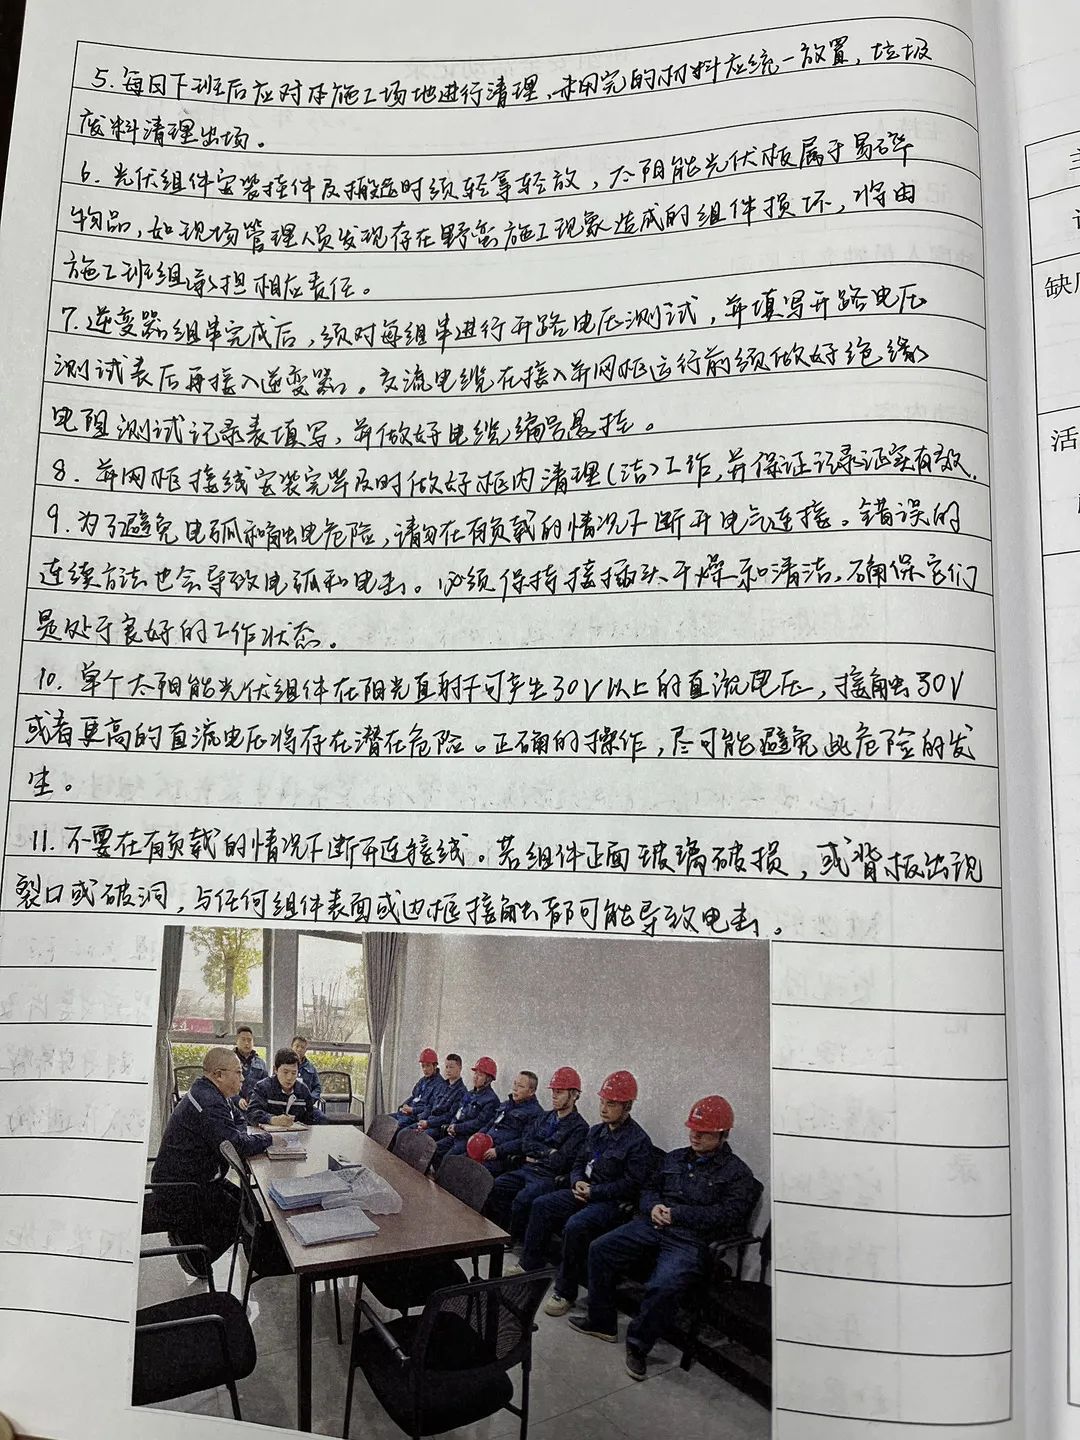 5. 每日下班后应对本施工场地进行清理，未用完的材料应统一放置，垃圾
废料清理出场。
6. 光伏组件安装挂件及搬运时须轻拿轻放，太阳能光伏板属于易碎
物品，如现场管理人员发现存在野蛮施工现象造成的组件损坏，将由
施工班组承担相应责任。
7. 逆变器组串完成后，须对每组串进行开路电压测试，并填写开路电压
测试表后再接入逆变器。交流电缆在接入并网柜运行前须做好绝缘
电阻测试记录表填写，并做好电缆编号悬挂。
8. 并网柜接线安装完毕及时做好柜内清理(洁)工作，并保证记录证实有效.
9. 为了避免电弧和触电危险，请勿在有负载的情况下断开电气连接。错误的
连续方法也会导致电弧和电击。必须保持接插头干燥和清洁，确保它们
是处于良好的工作状态。
10. 单个太阳能光伏组件在阳光直射下可产生30V以上的直流电压，接触30V
或者更高的直流电压将存在潜在危险。正确的操作，尽可能避免此危险的发
生。
11. 不要在有负载的情况下断开连接线。若组件正面玻璃破损，或背板出现
裂口或破洞，与任何组件表面或边框接触都可能导致电击。
缺
活
录